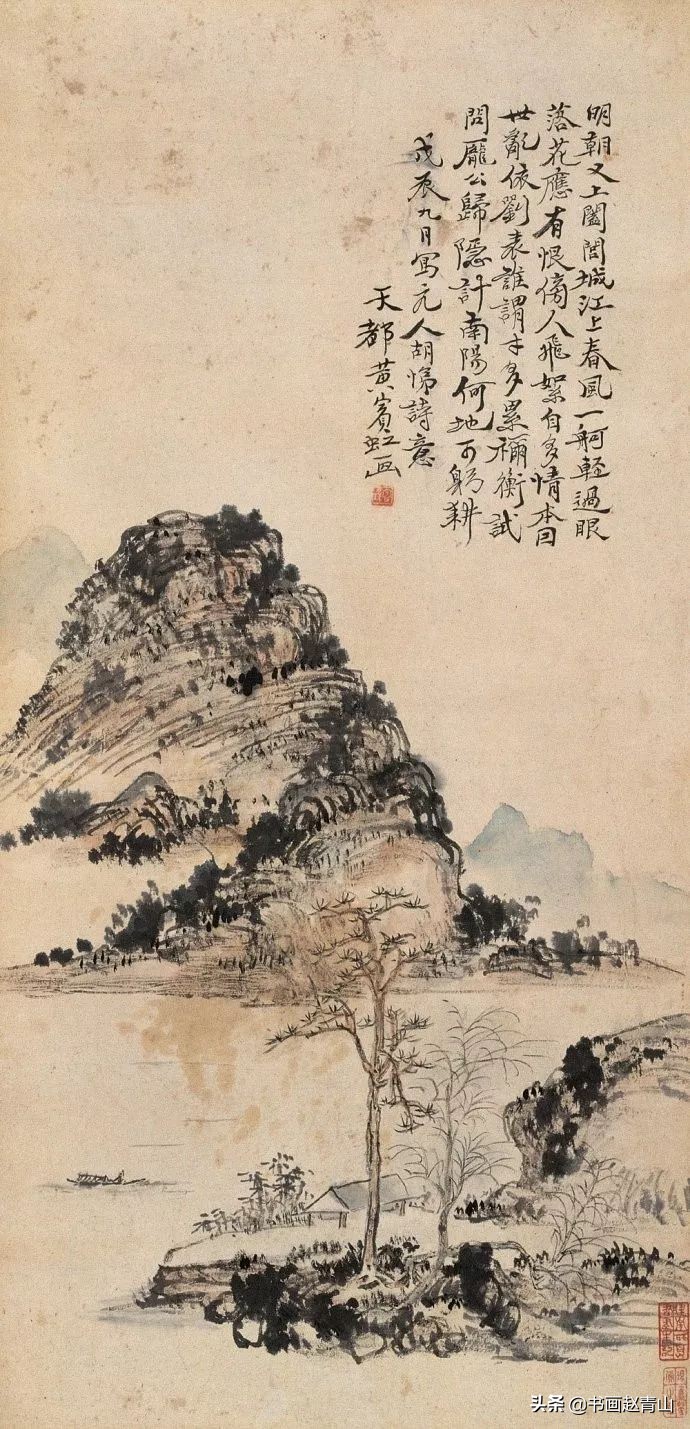 明朝又上闔閭城江上春風一舸輕過眼
落花應有恨傍人飛絮自多情本因
世亂依劉表誰謂才多累禰衡試
問龐公歸隱計南陽何地可躬耕
戊辰九月寫元人胡 詩意
天都黃賓虹画
头条 @书画赵青山